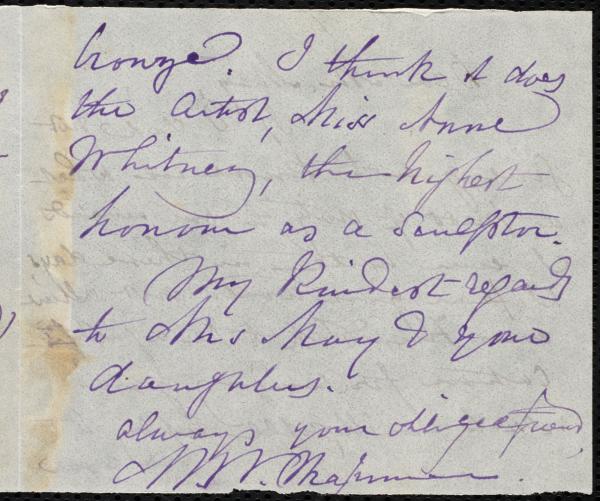 bronze. I think it does
the artist, Miss Anne
Whitney, the highest
honour as a sculptor.
My kindest regards
to Mrs May & your
daughters.
always your obliged friend,
M. W. Chapman.